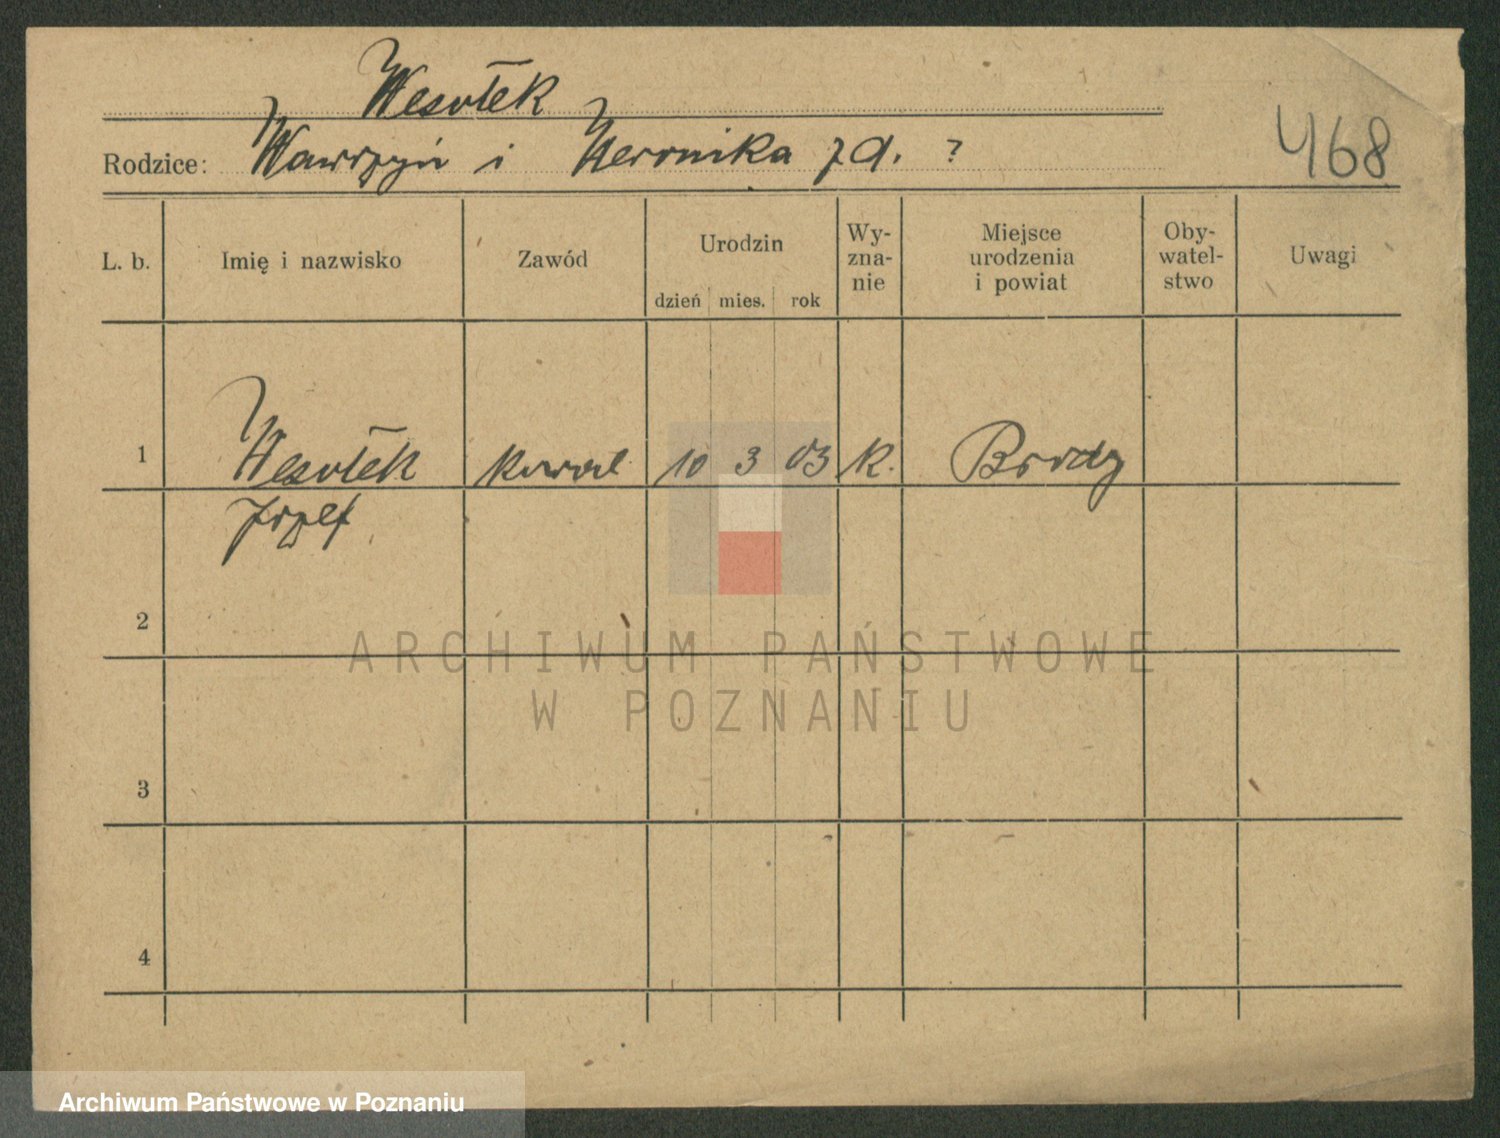 Wesołek
Rodzice: Wawrzyn i Weronika z d. ?
468
L. b. Imię i nazwisko Zawód Urodzin dzień mies. rok Wy-zna-nie Miejsce urodzenia i powiat Oby-watel-stwo Uwagi
1 Wesołek kowal 10 3 03 k. Brody
Józef
2
ARCHIWUM PAŃSTWOWE
W POZNANIU
3
4
Archiwum Państwowe w Poznaniu